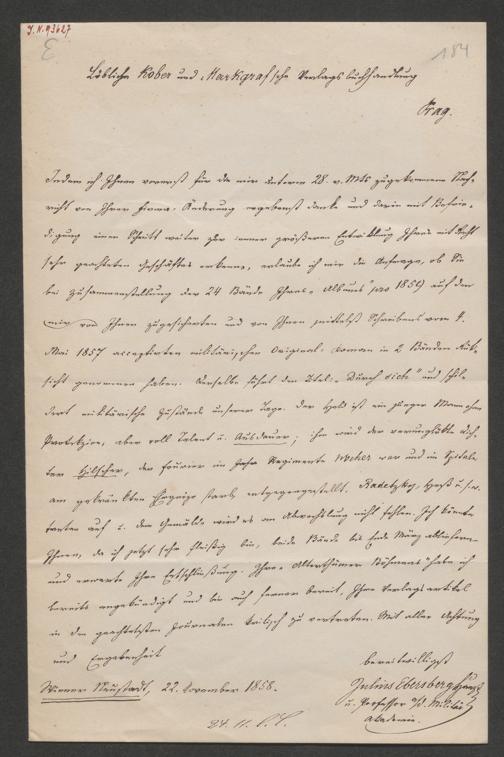 J.N. 93627
184
Löbliche Kober und Markgraf'sche Verlagsbuchhandlung
Prag.
Indem ich Ihnen vorerst für die mir unterm 28. v. Mts zugekommene Nach-
richt von Ihrer Firma-Änderung ergebenst danke und darin mit Befrie-
digung einen Schritt weiter zur immer größeren Entwicklung Ihres mit Recht
sehr geachteten Geschäftes erkenne, erlaube ich mir die Anfrage, ob Sie
bei Zusammenstellung der 24 Bände Ihres „Albums" pro 1859 auf den
mir von Ihnen zugesicherten und von Ihnen mittelst Schreibens vom 4.
Mai 1857 acceptirten militärischen Original-Roman in 2 Bänden Rük-
sicht genommen haben. Derselbe führt den Titel: „Durch sich" und schil-
dert militärische Zustände unserer Tage. Der Held ist ein junger Mann ohne
Protektzion, aber voll Talent u. Ausdauer; ihm wird der verunglükte Dich-
ter Hilscher, der Fourier im Regimente war und im Spitale
am gebrochenen Herzen starb entgegengestellt. Radetzky, Heß u.s.w.
treten auf u. dem Gemälde wird es an Abwechslung nicht fehlen. Ich könnte
Ihnen, da ich jetzt sehr fleißig bin, beide Bände bis Ende März abliefern
und erwarte Ihre Entschließung. Ihre „Alterthümer Böhmens" habe ich
bereits angekündigt und bin auch ferner bereit, Ihre Verlagsartikel
in den geachtetsten Journalen kritisch zu vertreten. Mit aller Achtung
und Ergebenheit
bereitwilligst
Wiener Neustadt, 22. November 1858.
Julius Ebersberg
u. Professor a/d. Militär
Akademie.
24. 11.